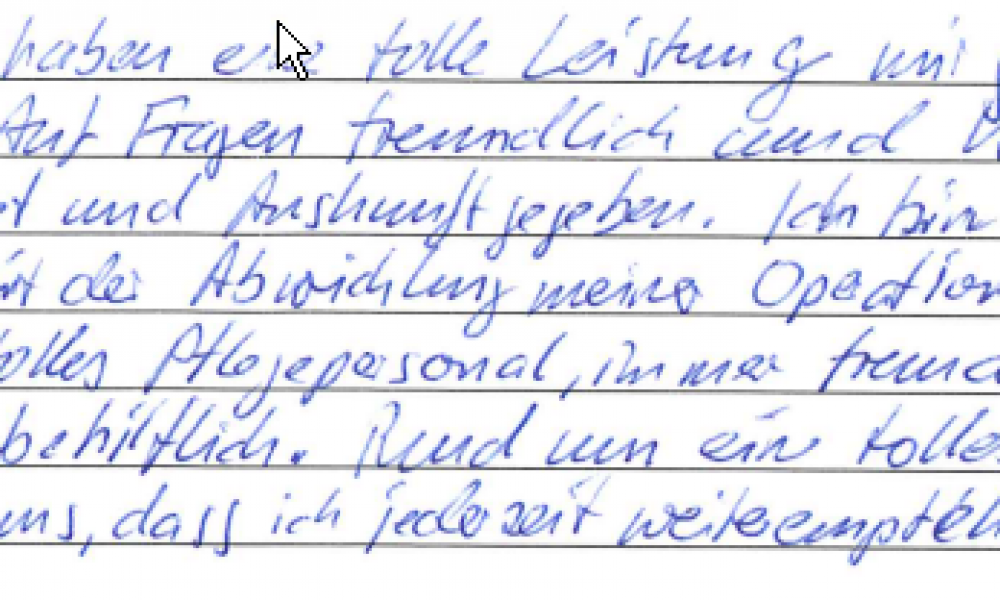 haben eine tolle Leistung mi
Auf Fragen freundlich und
t und Auskunft gegeben. Ich bin
it der Abwicklung meiner Operation
olles Pflegepersonal, immer freund
behilflich. Rund um ein tolles
uns, dass ich jederzeit weiterempfeh